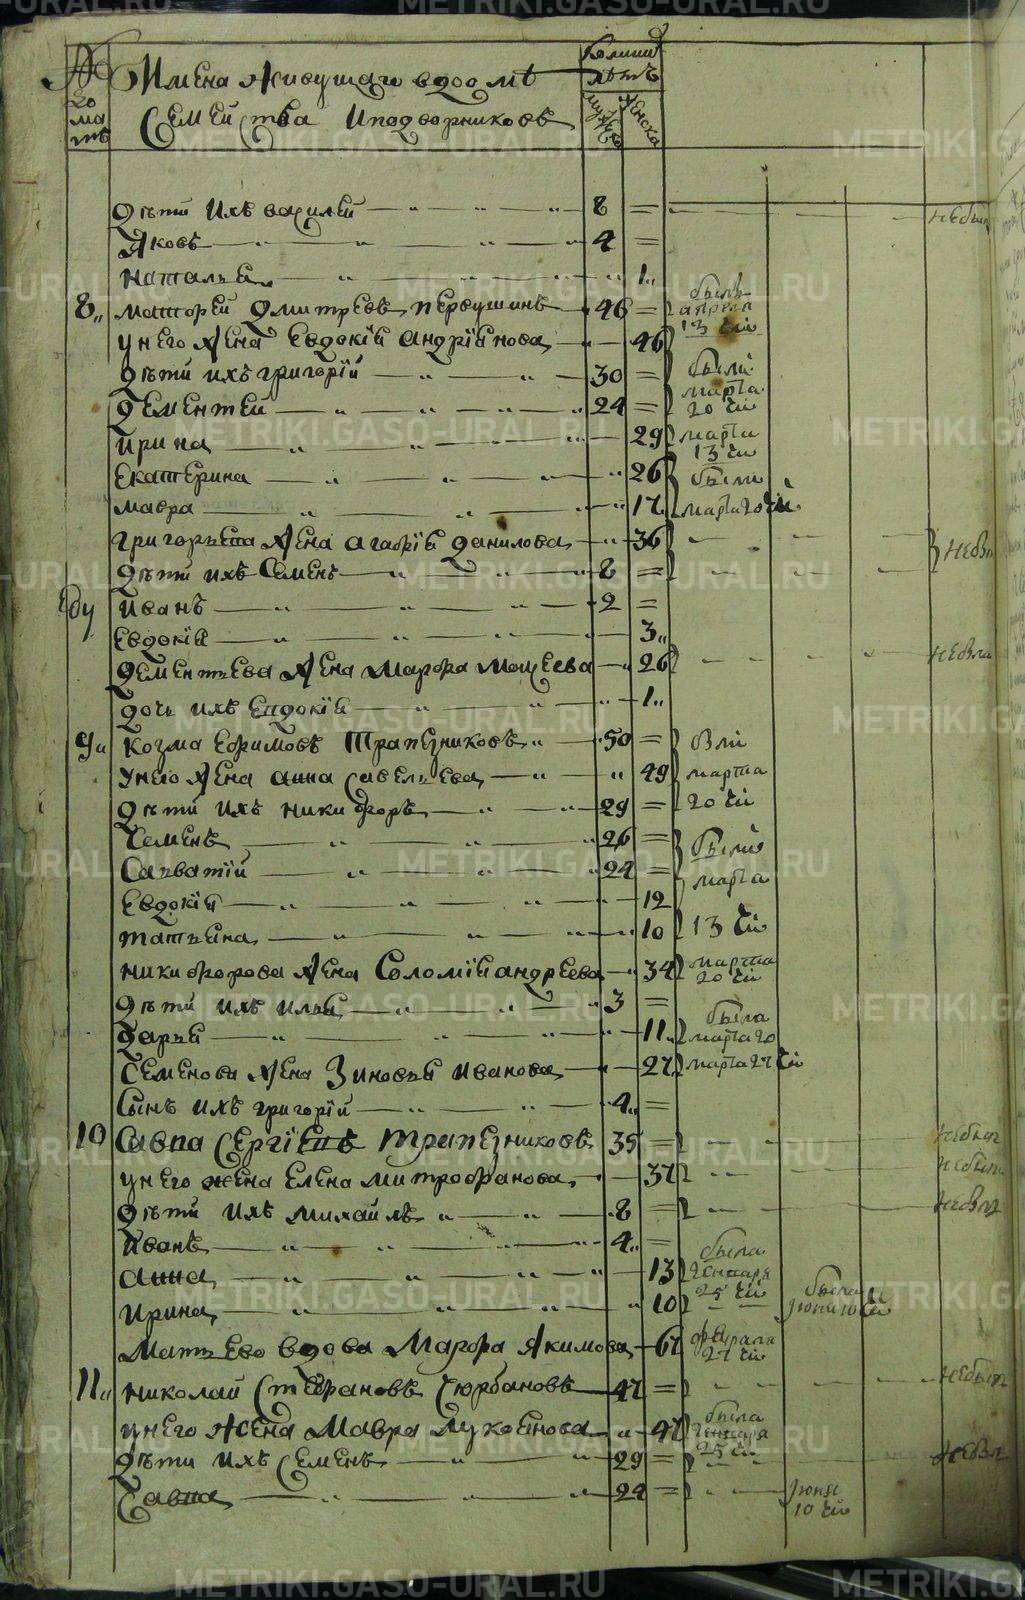 Имена живущаго вдомѣ
Семейства Иподворниковъ
мужеска
женска
дѣти ихъ василей 8 =
Яковъ 4 =
наталья 1
8 матфей дмитреевъ первушинъ 46 = былъ апреля 13 чи
унего жена Евдокїя андрїянова 46
дѣти ихъ григорїй 30 = были марта 20 чи
дементей 24 =
ирина 29 марта 13 чи
екатерина 26 были
мавра 17 марта 20 чи
григорьева жена агафїя данилова 36 небыл
дѣти ихъ Семенъ 8 =
иванъ 2 =
евдокїя 3
дементьева жена марфа моисеева 26 небыла
дочь ихъ евдокїя 1
9 козма ефимовъ трапезниковъ 50 = были
унего жена анна савельева 49 марта
дѣти ихъ никифоръ 29 = 20 чи
семенъ 26 = были
Савватїй 24 = марта
евдокїя 12
татьяна 10 13 чи
никифорова жена Соломїя андреева 34 марта 20 чи
дѣти ихъ илья 3 =
дарья 11 была марта 20
Семенова жена Зиновья иванова 27 марта 27 чи
Сынъ ихъ григорїй 4 =
10 Савва Сергїевъ трапезниковъ 35 = небыл
унего жена елена митрофанова 37 небыла
дѣти ихъ михайлъ 8 = небыл
иванъ 4 =
анна 13 была генваря 25 чи
ирина 10 была июня 10 чи
Матвеева вдова Марфа Якимова 67 февраля 27 чи
11 николай Стефановъ Сюрбановъ 47 = небыл
унего жена Мавра лукоянова 47 была генваря 25 чи
дѣти ихъ Семенъ 29 = небыл
Савва 24 = июня 10 чи
METRIKI.GASO-URAL.RU